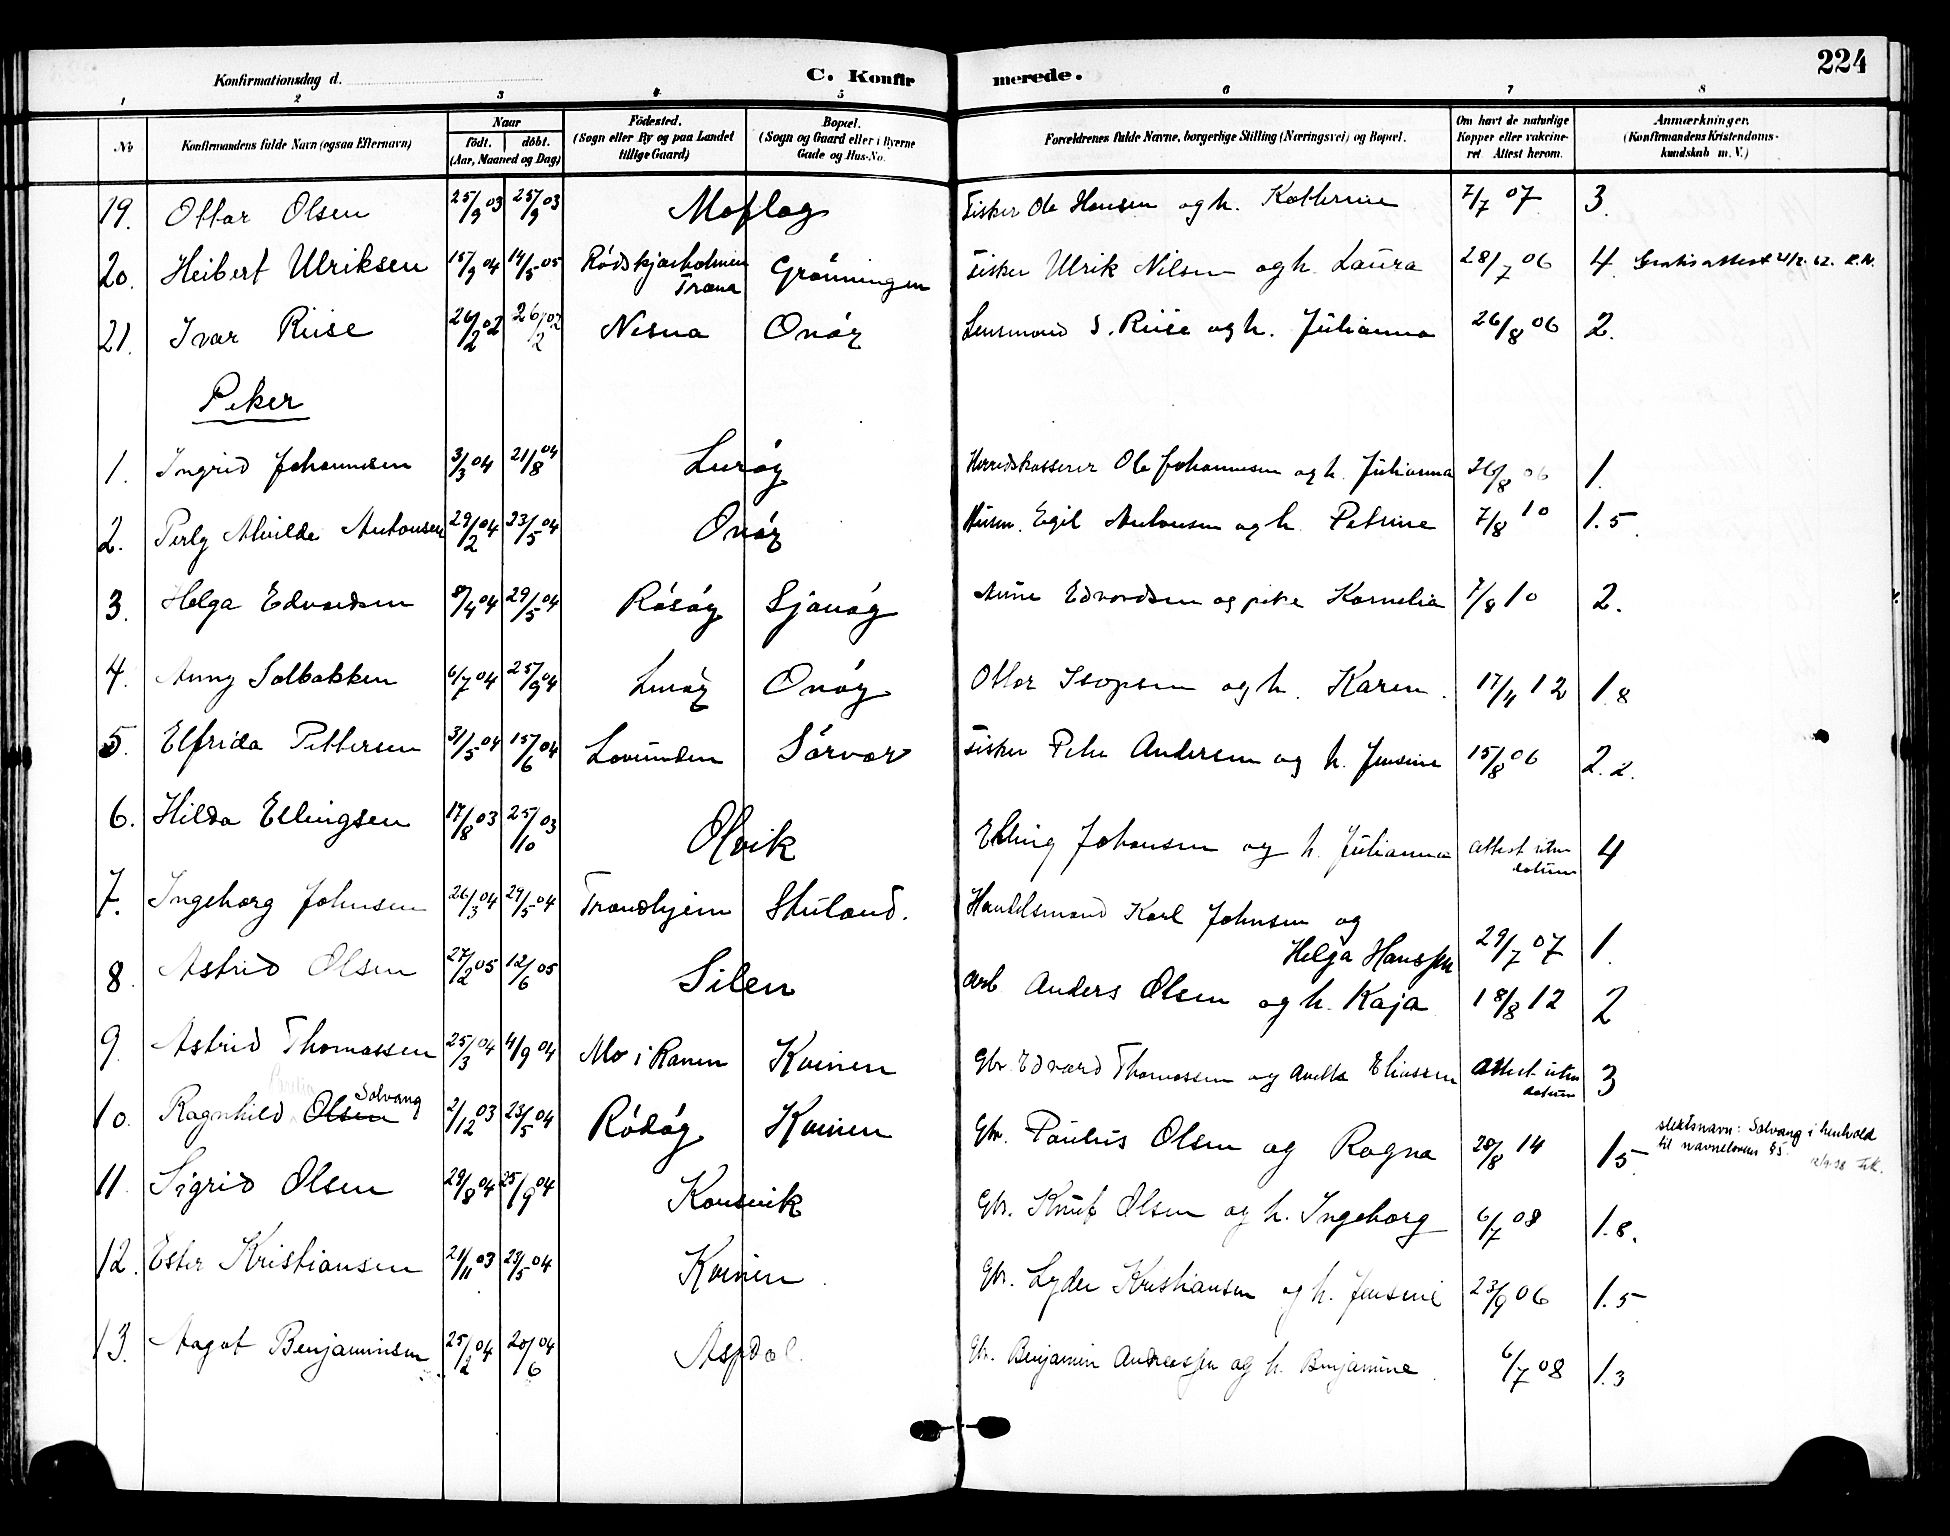 224
Konfirmationsdag d.
C. Konfirmerede.
1 2 3 4 5 6 7 8
No
Konfirmandens fulde Navn (ogsaa Efternavn)
Naar
født. døbt.
(Aar, Maaned og Dag)
Fødested.
(Sogn eller By og paa Landet
tillige Gaard)
Bopæl.
(Sogn og Gaard eller i Byerne
Gade og Hus-No.
Forældrenes fulde Navne, borgerlige Stilling (Næringsvei) og Bopæl.
Om havt de naturlige
Kopper eller vakcine-
ret Attest herom.
Anmærkninger.
(Konfirmandens Kristendoms-
kundskab m. V.)
19. Ottar Olsen 25/9 03 25/9 03 Moflag Fisker Ole Hansen og h. Katherine 7/7 07 3.
20. Heibert Ulriksen 15/9 04 14/5 05 Rødskjærholmen Træna Grønningen Fisker Ulrik Nilsen og h. Laura 28/7 06 4. Gratis attest
21. Ivar Riise 26/2 02 26/2 02 Nesna Onøy Lensmand S. Riise og h. Julianna 26/8 06 2.
Piker
1. Ingrid Johannesen 3/3 04 21/8 04 Lurøy Herredskasserer Ole Johannesen og h. Julianna 26/8 06 1.
2. Perly Alvilde Antonsen 29/2 04 23/5 04 Onøy Husm. Egil Antonsen og h. Petrine 7/8 10 1.5
3. Helga Edvardsen 8/4 04 29/5 04 Røsøy Sjonøy Arne Edvardsen og pike Kornelia 7/8 10 2.
4. Anny Solbakken 6/7 04 25/9 04 Lurøy Onøy Ottar Isopsen og h. Karen. 17/4 12 1.8
5. Elfrida Pettersen 31/5 04 15/6 04 Lovunden Sørvær Fisker Peter Andersen og h. Jensine 15/8 06 2.2.
6. Hilda Ellingsen 17/8 03 25/10 03 Olvik Elling Johansen og h. Julianna attest uten datum 4
7. Ingeborg Johnsen 26/3 04 29/5 04 Trondhjem Stuland. Handelsmand Karl Johnsen og
Helga Hanssen 29/7 07 1.
8. Astrid Olsen 27/2 05 12/6 05 Silen arb Anders Olsen og h. Kaja 18/8 12 2
9. Astrid Thomassen 25/3 04 4/9 04 Mo i Ranen Kvinen Gbr. Edvard Thomassen og Anetta Eliassen attest uten datum 3
10. Ragnhild Olsen Solvang 2/12 03 23/5 04 Rødøy Kvinen Gbr. Paulus Olsen og Ragna 28/8 14 1.5 slektsnavn: Solvang i henhold
til navneloven §5.
11. Sigrid Olsen 29/8 04 25/9 04 Konsvik Gbr. Knut Olsen og h. Ingeborg 6/7 08 1.8.
12. Ester Kristiansen 21/11 03 23/5 04 Kvinen Gbr. Lyder Kristiansen og h. Jensine 23/9 06 1.5
13. Aagot Benjaminsen 25/2 04 20/6 04 Aspdal Gbr. Benjamin Andreassen og h. Benjamine 6/7 08 1.3